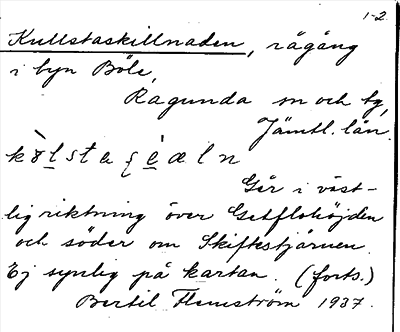 1-2.
Kullstaskillnaden, rågång
i byn Böle,
Ragunda sn och tg,
Jämtl. län.
Går i väst-
lig riktning över Getflohöjden
och söder om Skiftestjärnen.
Ej synlig på kartan. (forts.)
Bertil Flemström 1937.